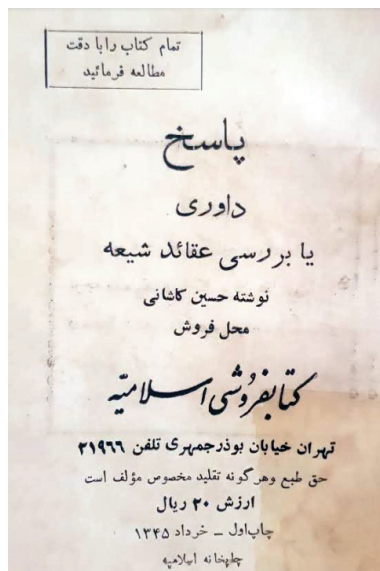 تمام کتاب را با دقت
مطالعه فرمائید
پاسخ
داوری
یا بررسی عقائد شیعه
نوشته حسین کاشانی
محل فروش
کتابفروشی اسلامیّه
تهران خیابان بوذرجمهری تلفن ۲۱۹۶۶
حق طبع وهرگونه تقلید مخصوص مؤلف است
ارزش ۲۰ ریال
چاپ اول ــ خرداد ۱۳۴۵
چاپخانه اسلامیه